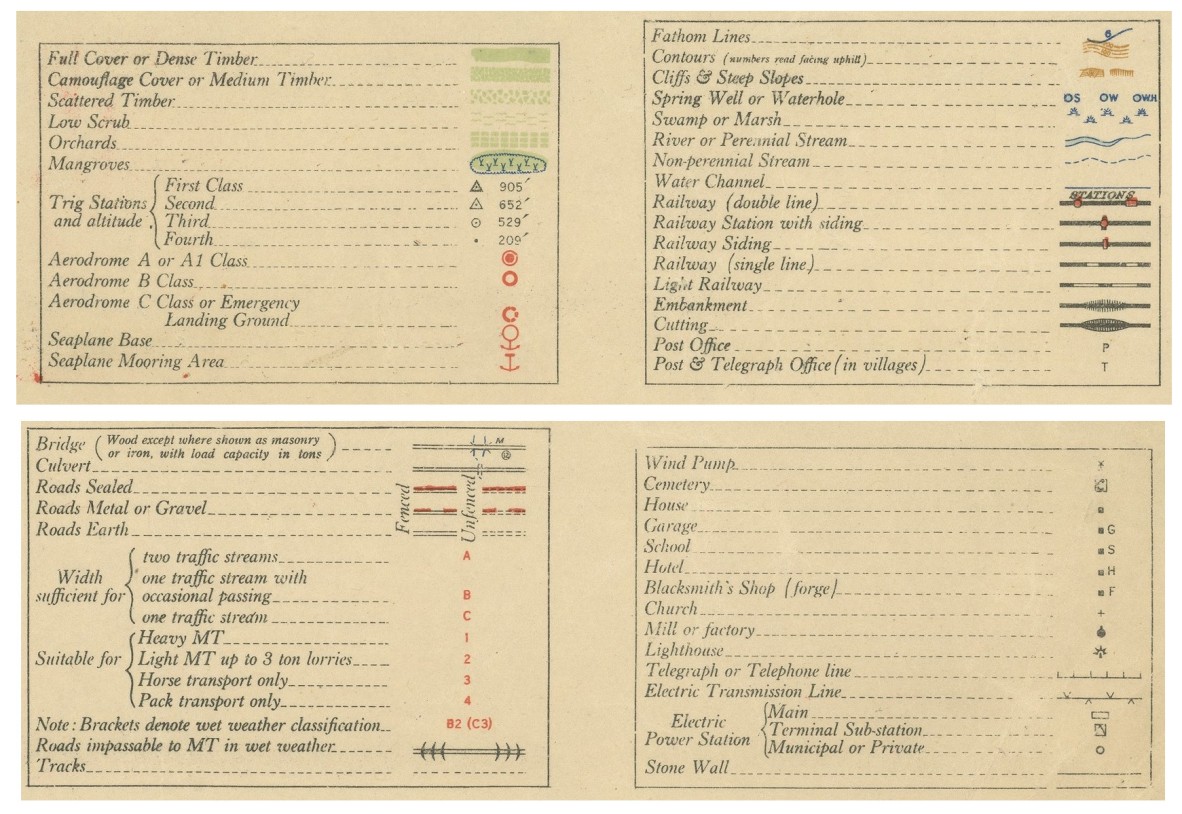 Full Cover or Dense Timber
Camouflage Cover or Medium Timber
Scattered Timber
Low Scrub
Orchards
Mangroves
Trig Stations and altitude
First Class 905′
Second 652′
Third 529′
Fourth 209′
Aerodrome A or A1 Class
Aerodrome B Class
Aerodrome C Class or Emergency
Landing Ground
Seaplane Base
Seaplane Mooring Area
Fathom Lines 6
Contours (numbers read facing uphill)
Cliffs & Steep Slopes
Spring Well or Waterhole OS OW OWH
Swamp or Marsh
River or Perennial Stream
Non-perennial Stream
Water Channel
STATIONS
Railway (double line)
Railway Station with siding
Railway Siding
Railway (single line)
Light Railway
Embankment
Cutting
Post Office P
Post & Telegraph Office (in villages) T
Bridge (Wood except where shown as masonry
or iron, with load capacity in tons) M
Culvert
Roads Sealed
Roads Metal or Gravel
Roads Earth
Fenced
Unfenced
Width
sufficient for
two traffic streams A
one traffic stream with
occasional passing B
one traffic stream C
Suitable for
Heavy MT 1
Light MT up to 3 ton lorries 2
Horse transport only 3
Pack transport only 4
Note: Brackets denote wet weather classification B2 (C3)
Roads impassable to MT in wet weather
Tracks
Wind Pump
Cemetery
House
Garage G
School S
Hotel H
Blacksmith's Shop (forge) F
Church
Mill or factory
Lighthouse
Telegraph or Telephone line
Electric Transmission Line
Electric
Power Station
Main
Terminal Sub-station
Municipal or Private
Stone Wall